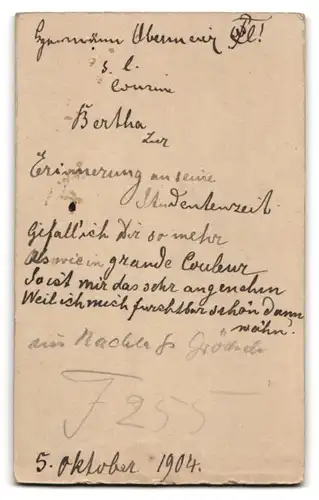 Hermann Obermeir
s. l.
Cousine
Bertha
zur
Erinnerung an seine
Studentenzeit.
Gefall' ich Dir so mehr
Als wie in grande Couleur
So ist mir das sehr angenehm
Weil ich mich furchtbar schön dann
wähn'.
aus Nachlaß
F 255
5. Oktober 1904.